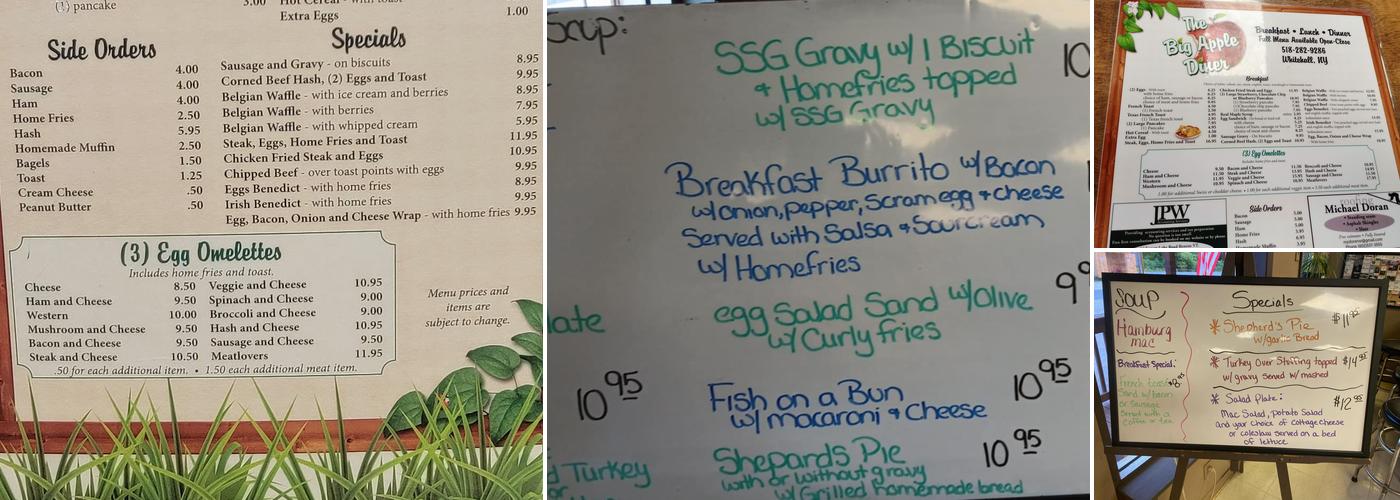 (1) pancake
3.00
Hot Cereal - with toast
Extra Eggs 1.00
Side Orders
Bacon 4.00
Sausage 4.00
Ham 4.00
Home Fries 2.50
Hash 5.95
Homemade Muffin 2.50
Bagels 1.50
Toast 1.25
Cream Cheese .50
Peanut Butter .50
Specials
Sausage and Gravy - on biscuits 8.95
Corned Beef Hash, (2) Eggs and Toast 9.95
Belgian Waffle - with ice cream and berries 8.95
Belgian Waffle - with berries 7.95
Belgian Waffle - with whipped cream 5.95
Steak, Eggs, Home Fries and Toast 11.95
Chicken Fried Steak and Eggs 10.95
Chipped Beef - over toast points with eggs 9.95
Eggs Benedict - with home fries 8.95
Irish Benedict - with home fries 9.95
Egg, Bacon, Onion and Cheese Wrap - with home fries 9.95
(3) Egg Omelettes
Includes home fries and toast.
Cheese 8.50
Ham and Cheese 9.50
Western 10.00
Mushroom and Cheese 9.50
Bacon and Cheese 9.50
Steak and Cheese 10.50
Veggie and Cheese 10.95
Spinach and Cheese 9.00
Broccoli and Cheese 9.00
Hash and Cheese 10.95
Sausage and Cheese 9.50
Meatlovers 11.95
.50 for each additional item. • 1.50 each additional meat item.
Menu prices and
items are
subject to change.
Soup:
SSG Gravy w/ 1 Biscuit 10
& Homefries topped
w/ SSG Gravy
Breakfast Burrito w/Bacon
w/onion, pepper, scram egg & cheese
Served with Salsa & Sourcream
w/ Homefries
egg Salad Sand w/Olive 9
w/ Curly fries
10.95
Fish on a Bun 10.95
w/ macaroni & cheese
Shepards Pie 10.95
with or without gravy
w/ Grilled homemade bread
Turkey
The
Big Apple
Diner
Breakfast • Lunch • Dinner
Full Menu Available Open-Close
518-282-9286
Whitehall, NY
Breakfast
(3) Egg Omelettes
Includes home fries and toast.
Cheese
Ham and Cheese
Western
Mushroom and Cheese
Bacon and Cheese
Steak and Cheese
Veggie and Cheese
Spinach and Cheese
Broccoli and Cheese
Hash and Cheese
Sausage and Cheese
Meatlovers
JPW
Side Orders
Bacon
Sausage
Ham
Home Fries
Hash
Homemade Muffin
Michael Doran
• Standing seam
• Asphalt Shingles
• Slate
Soup
Hamburg
mac
Breakfast Special:
French toast
Sand w/ bacon
or sausage
served with a
coffee or tea
Specials
* Shepherd's Pie $11.95
w/garlic Bread
* Turkey Over Stuffing topped $14.95
w/ gravy served w/ mashed
* Salad Plate: $12.95
Mac Salad, potato Salad
and your choice of cottage cheese
or coleslaw served on a bed
of lettuce